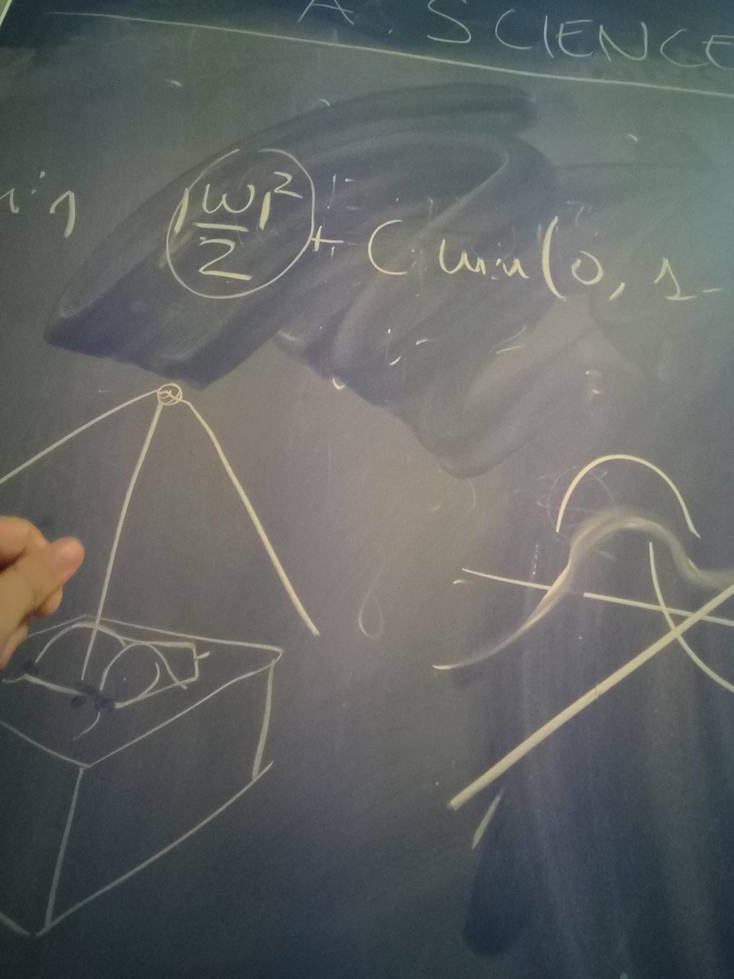 A. SCIENCE
min |w|²/2 + C min(0, 1-